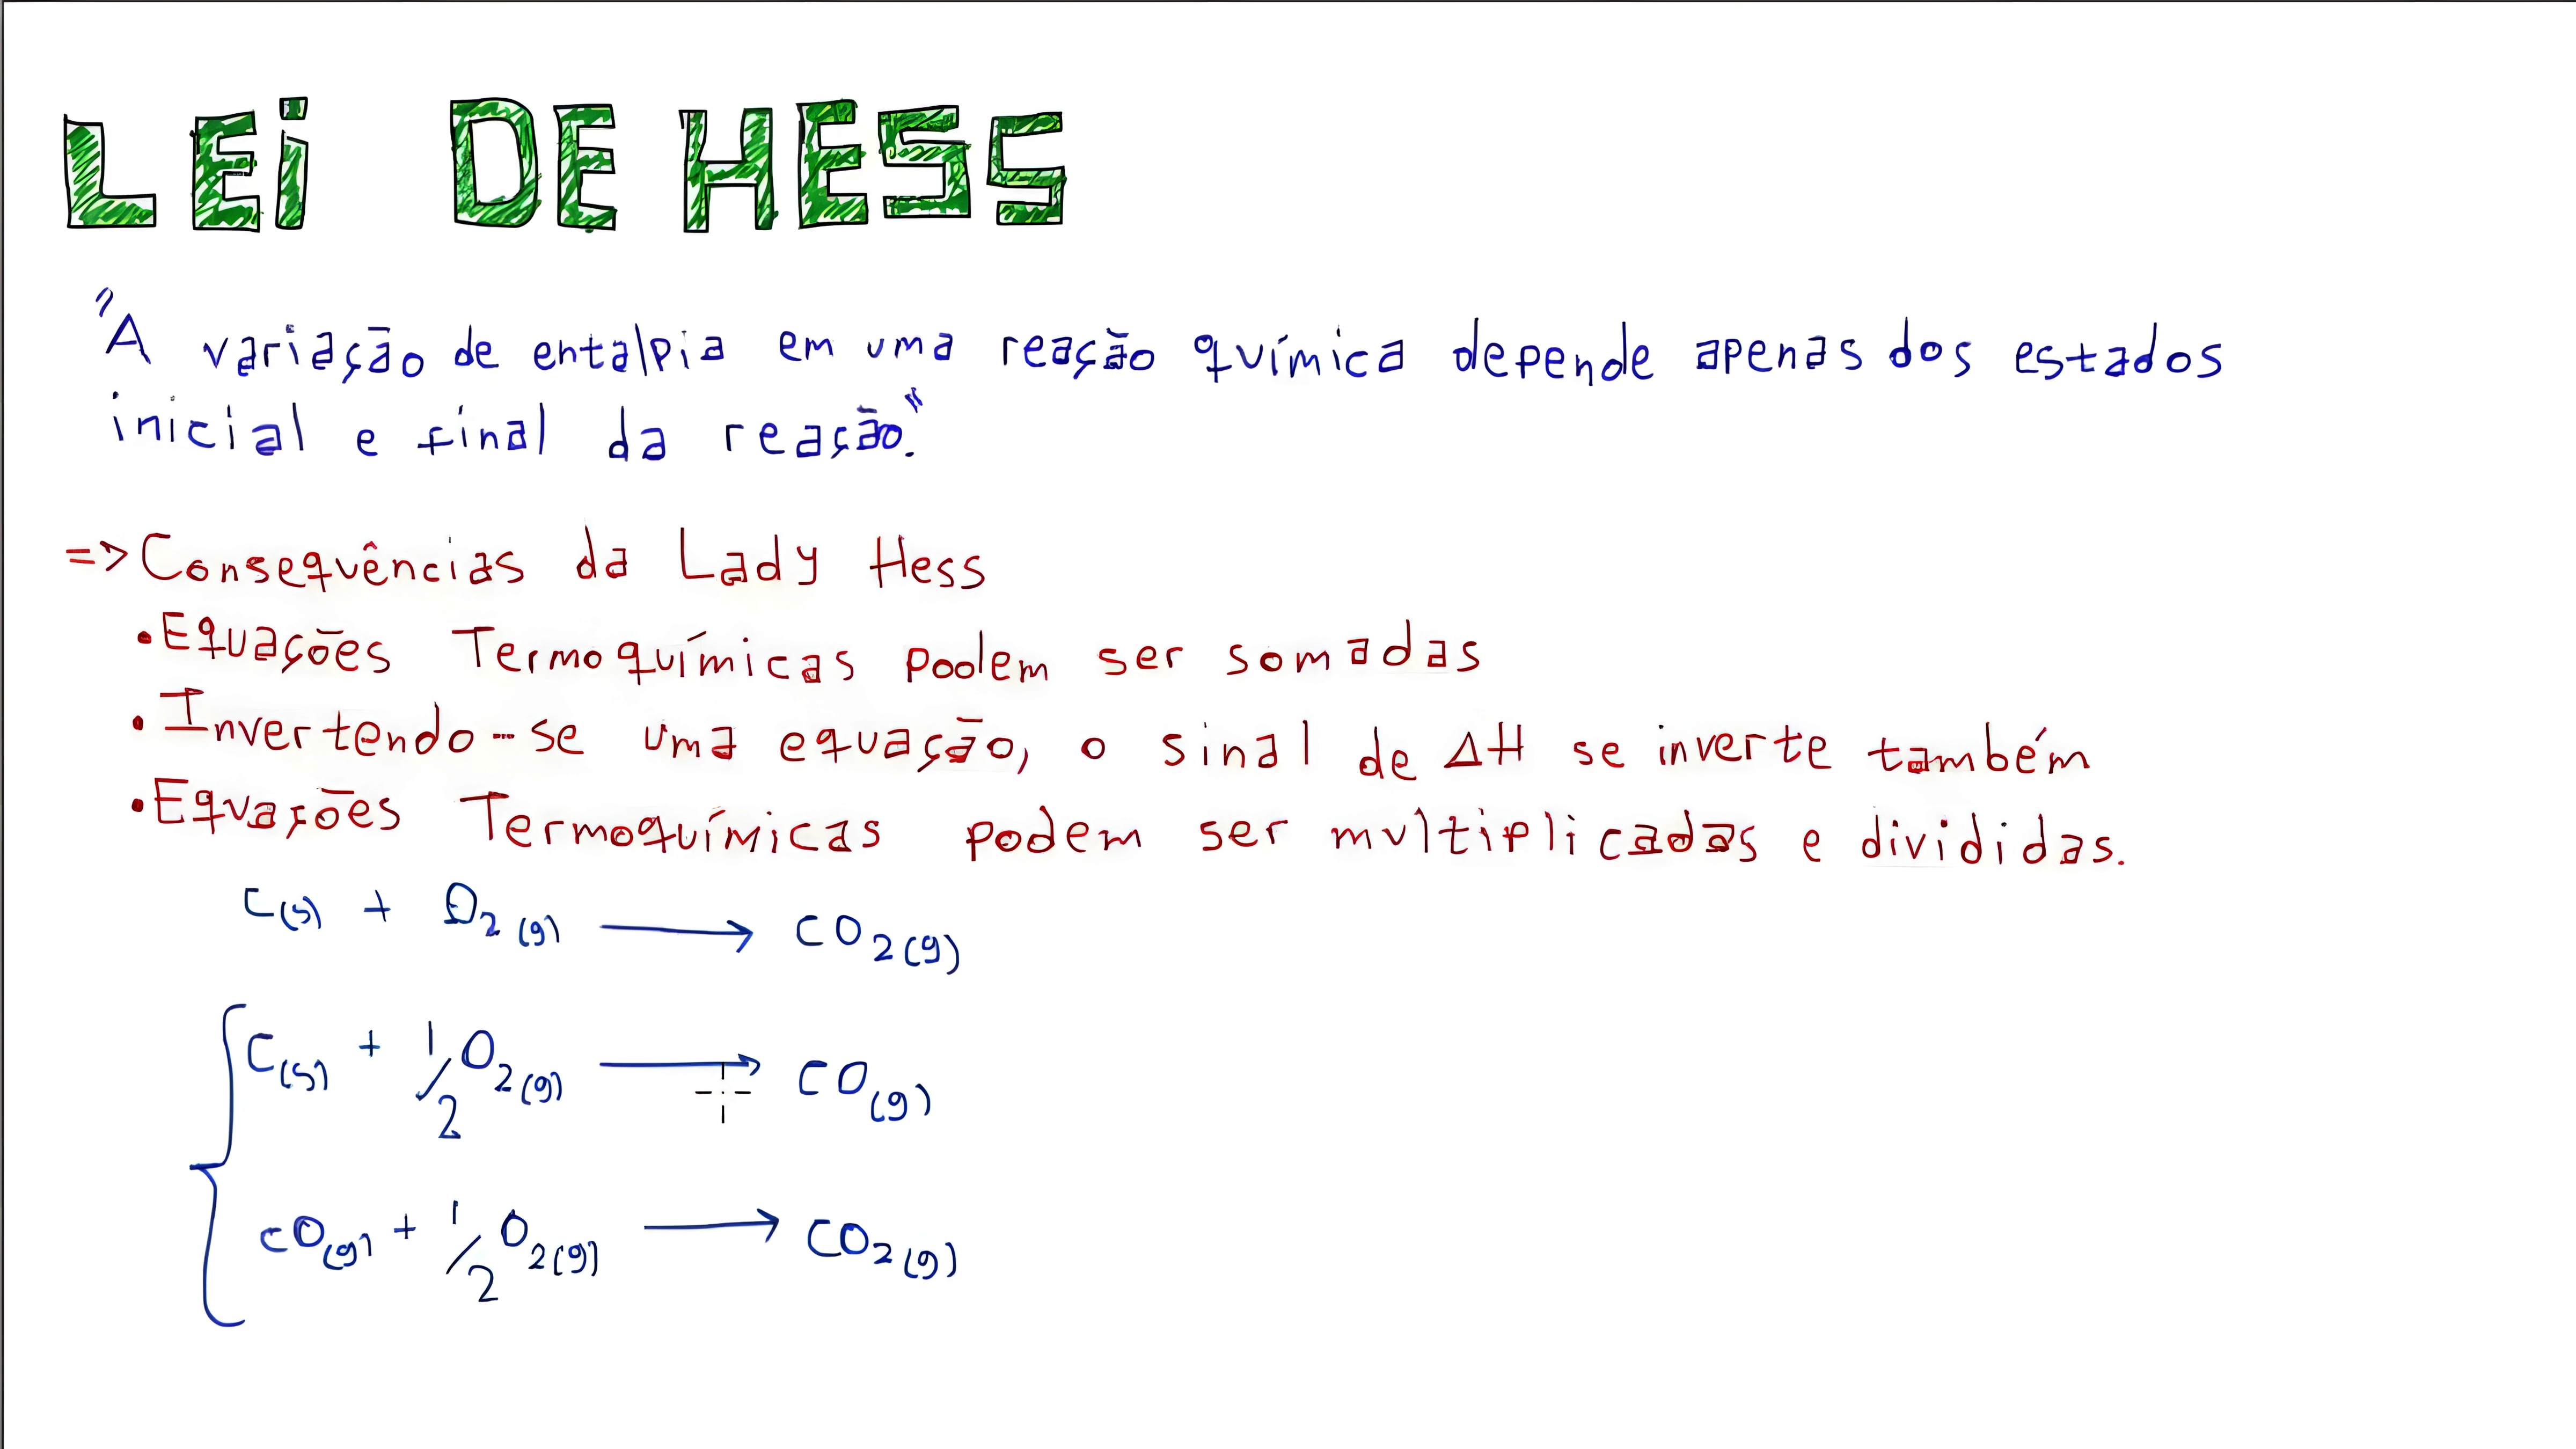 LEi DE HESS
"A variação de entalpia em uma reação química depende apenas dos estados
inicial e final da reação."
=> Consequências da Lady Hess
• Equações Termoquímicas podem ser somadas
• Invertendo-se uma equação, o sinal de ΔH se inverte também
• Equações Termoquímicas podem ser multiplicadas e divididas.
C(s) + O₂(g) ⟶ CO₂(g)
C(s) + 1/2 O₂(g) ⟶ CO(g)
CO(g) + 1/2 O₂(g) ⟶ CO₂(g)